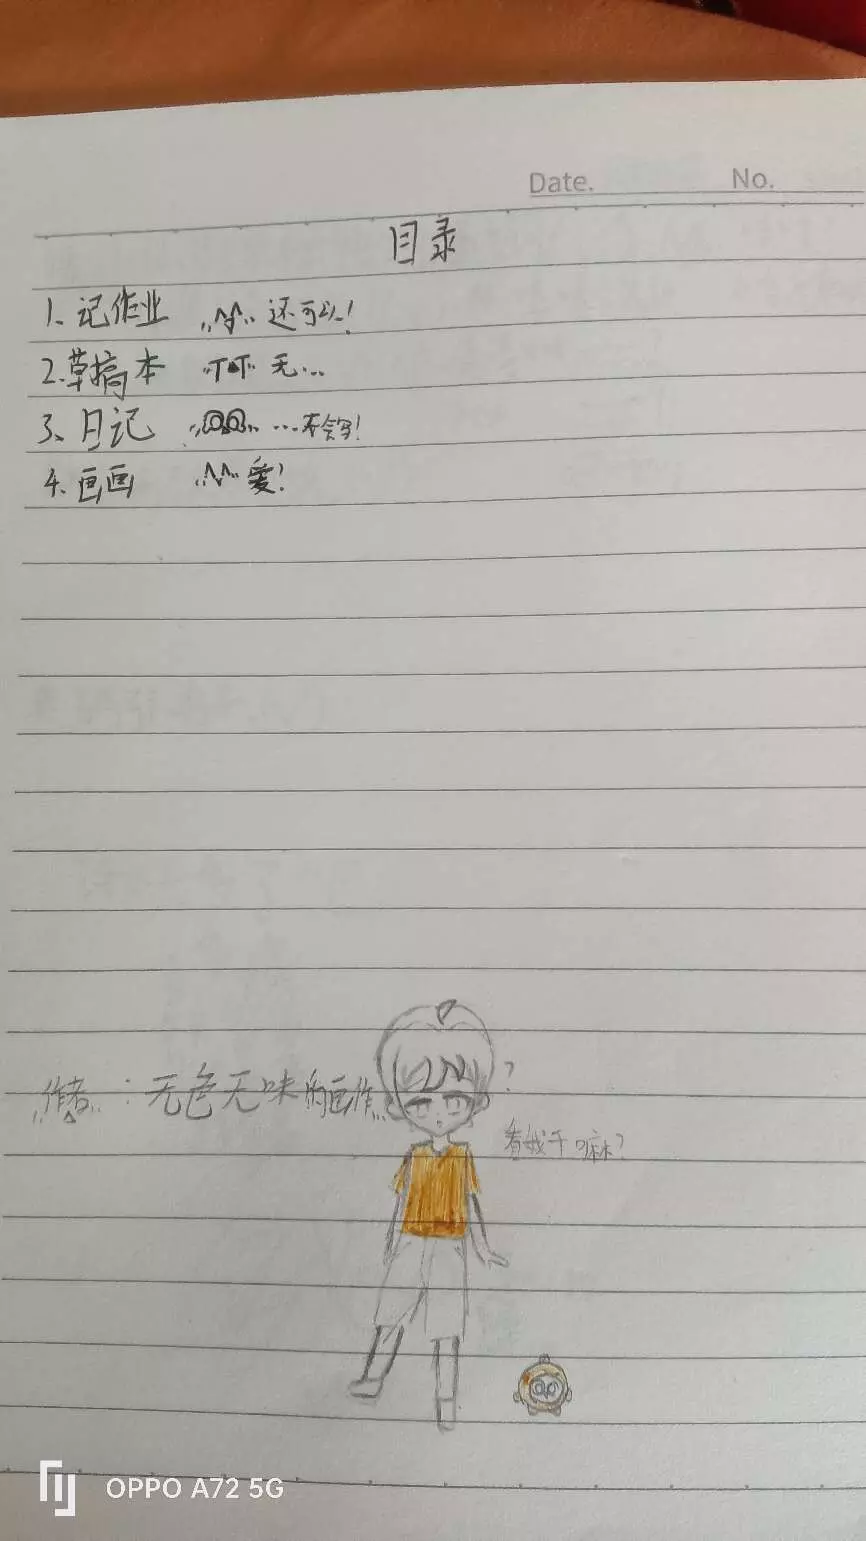 Date. No.
目录
1、记作业 还可以!
2.草搞本 无...
3、日记 ...不会写!
4.画画 爱!
作者:无色无味的画作
?
看我干嘛?
OPPO A72 5G